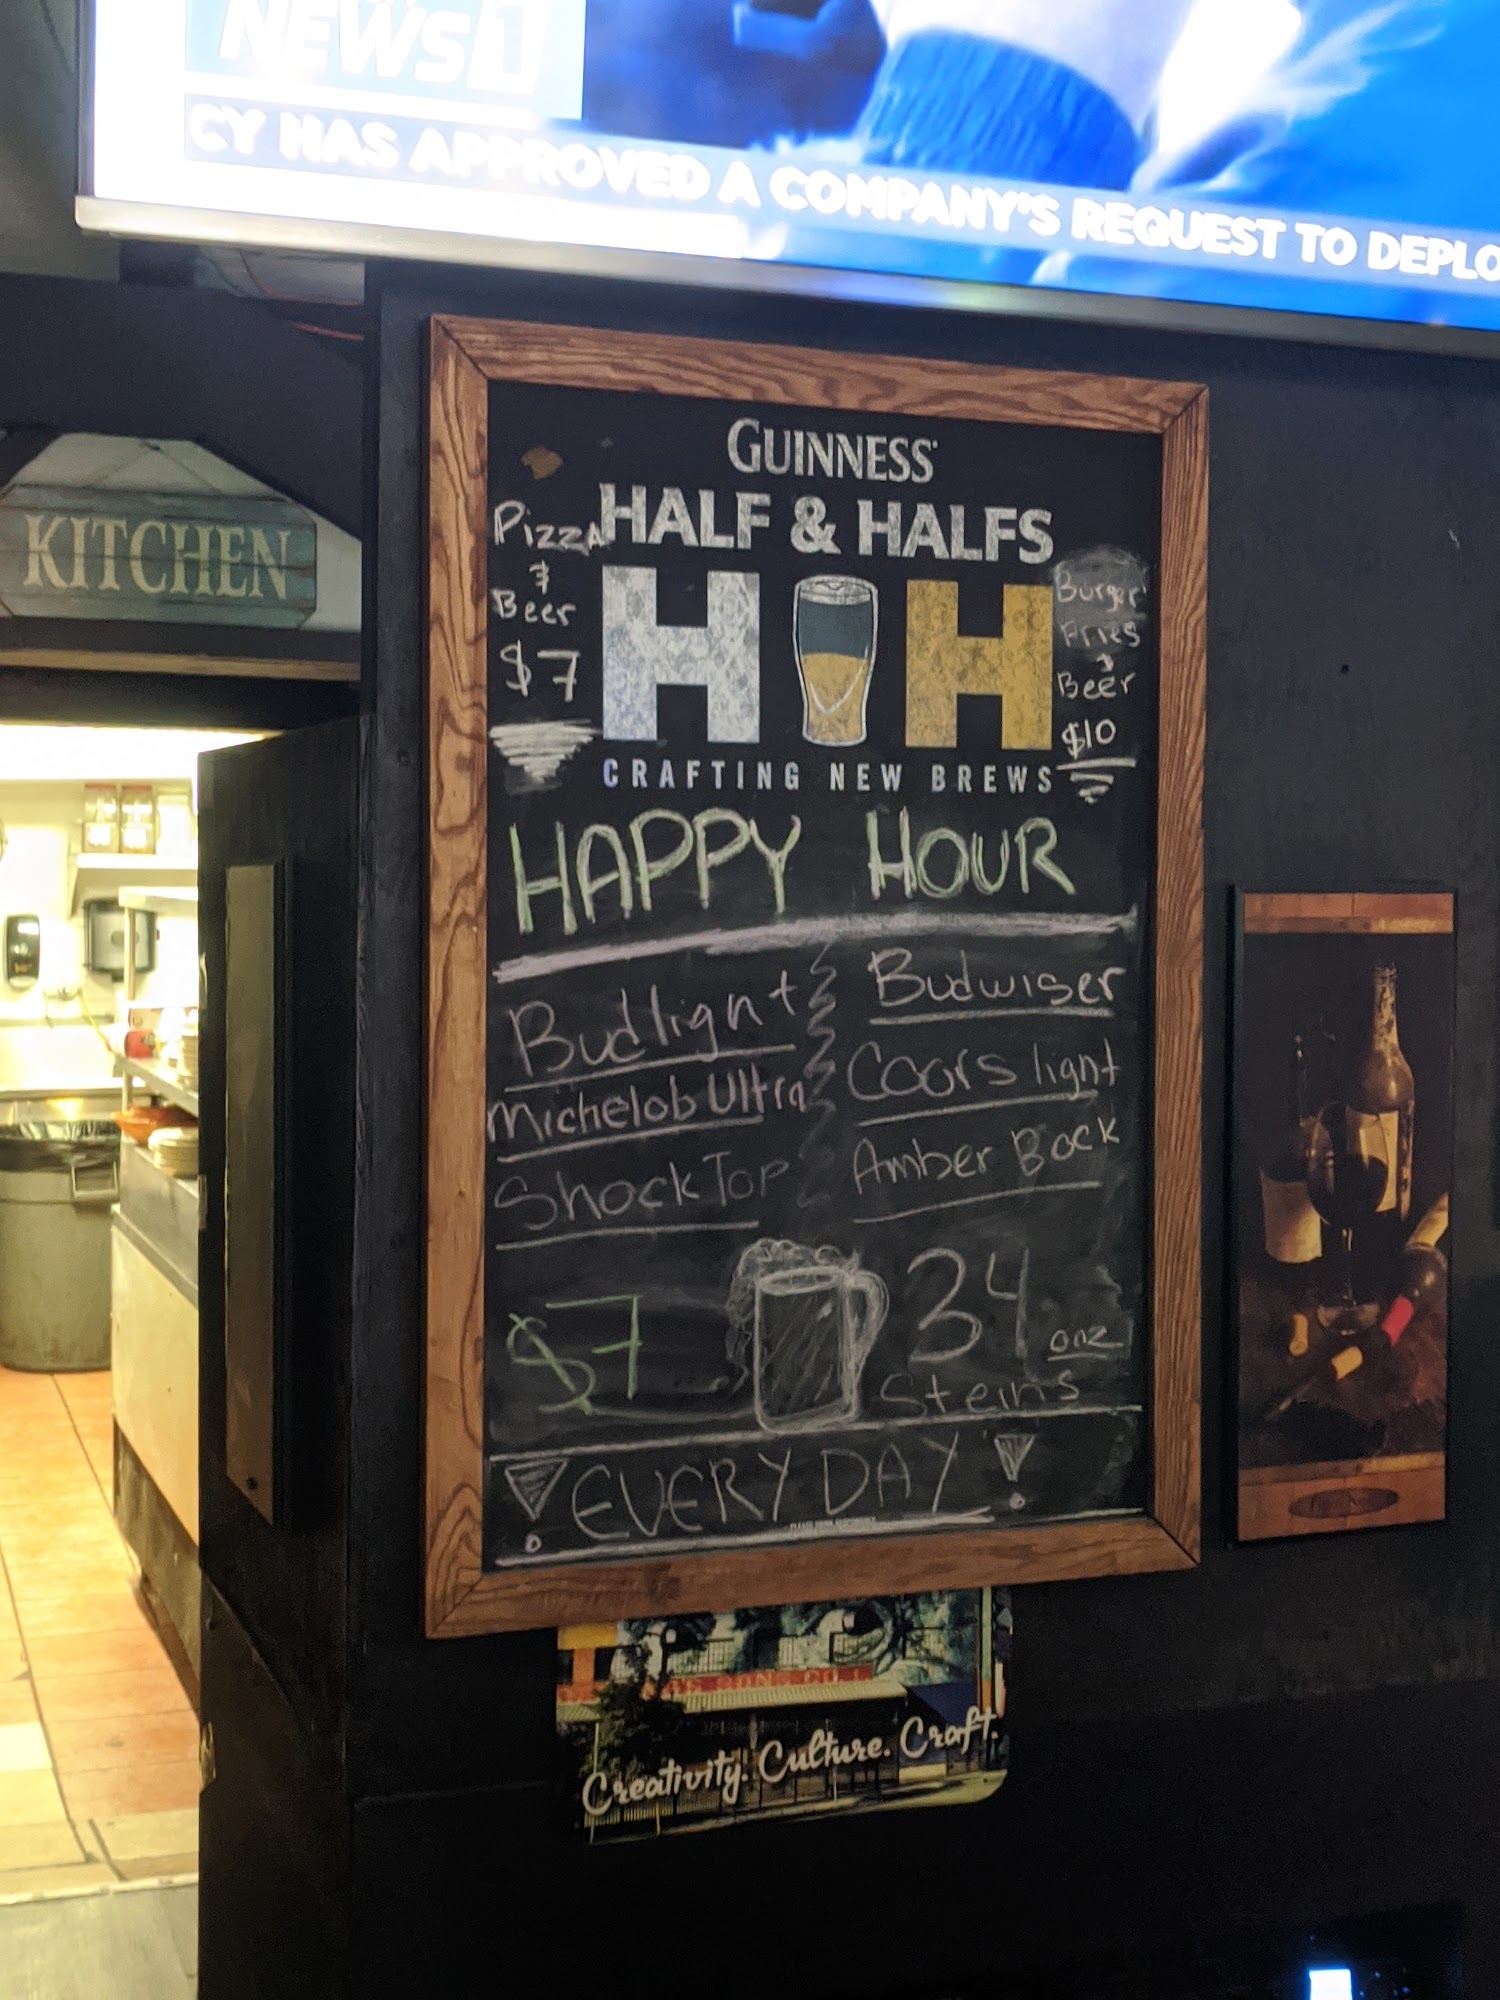 NEWS 1
CY HAS APPROVED A COMPANY'S REQUEST TO DEPLO
KITCHEN
GUINNESS
HALF & HALFS
Pizza
&
Beer
$7
H H
Burger
Fries
&
Beer
$10
CRAFTING NEW BREWS
HAPPY HOUR
Budlight
Budwiser
Michelob Ultra
Coors light
Shock Top
Amber Bock
$7
34 onz
Steins
! EVERY DAY !
Creativity. Culture. Craft.